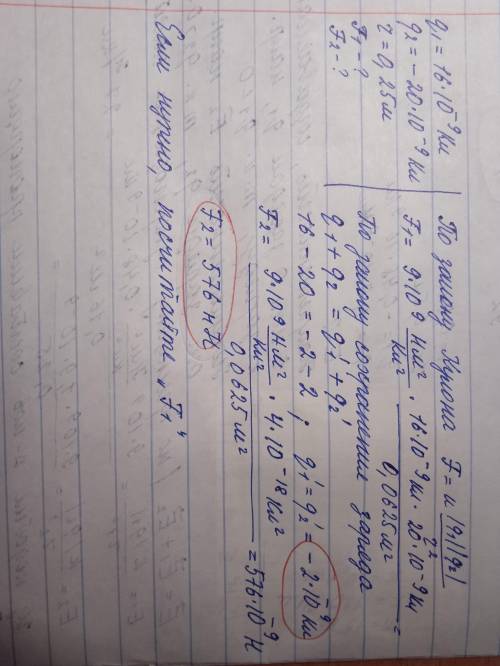 q₁ = 16·10⁻⁹ Кл
q₂ = −20·10⁻⁹ Кл
r = 0,25 м
F₁ − ?
F₂ − ?
По закону Кулона F = k |q₁||q₂| / r²
F₁ = 9·10⁹ Нм²/Кл² · 16·10⁻⁹ Кл · 20·10⁻⁹ Кл / 0,0625 м² =
По закону сохранения заряда
q₁ + q₂ = q₁' + q₂'
16 − 20 = −2 − 2 ; q₁' = q₂' = −2·10⁻⁹ Кл
F₂ = 9·10⁹ Нм²/Кл² · 4·10⁻¹⁸ Кл² / 0,0625 м² = 576·10⁻⁹ Н
F₂ = 576 нН
Если нужно, посчитайте „F₁“